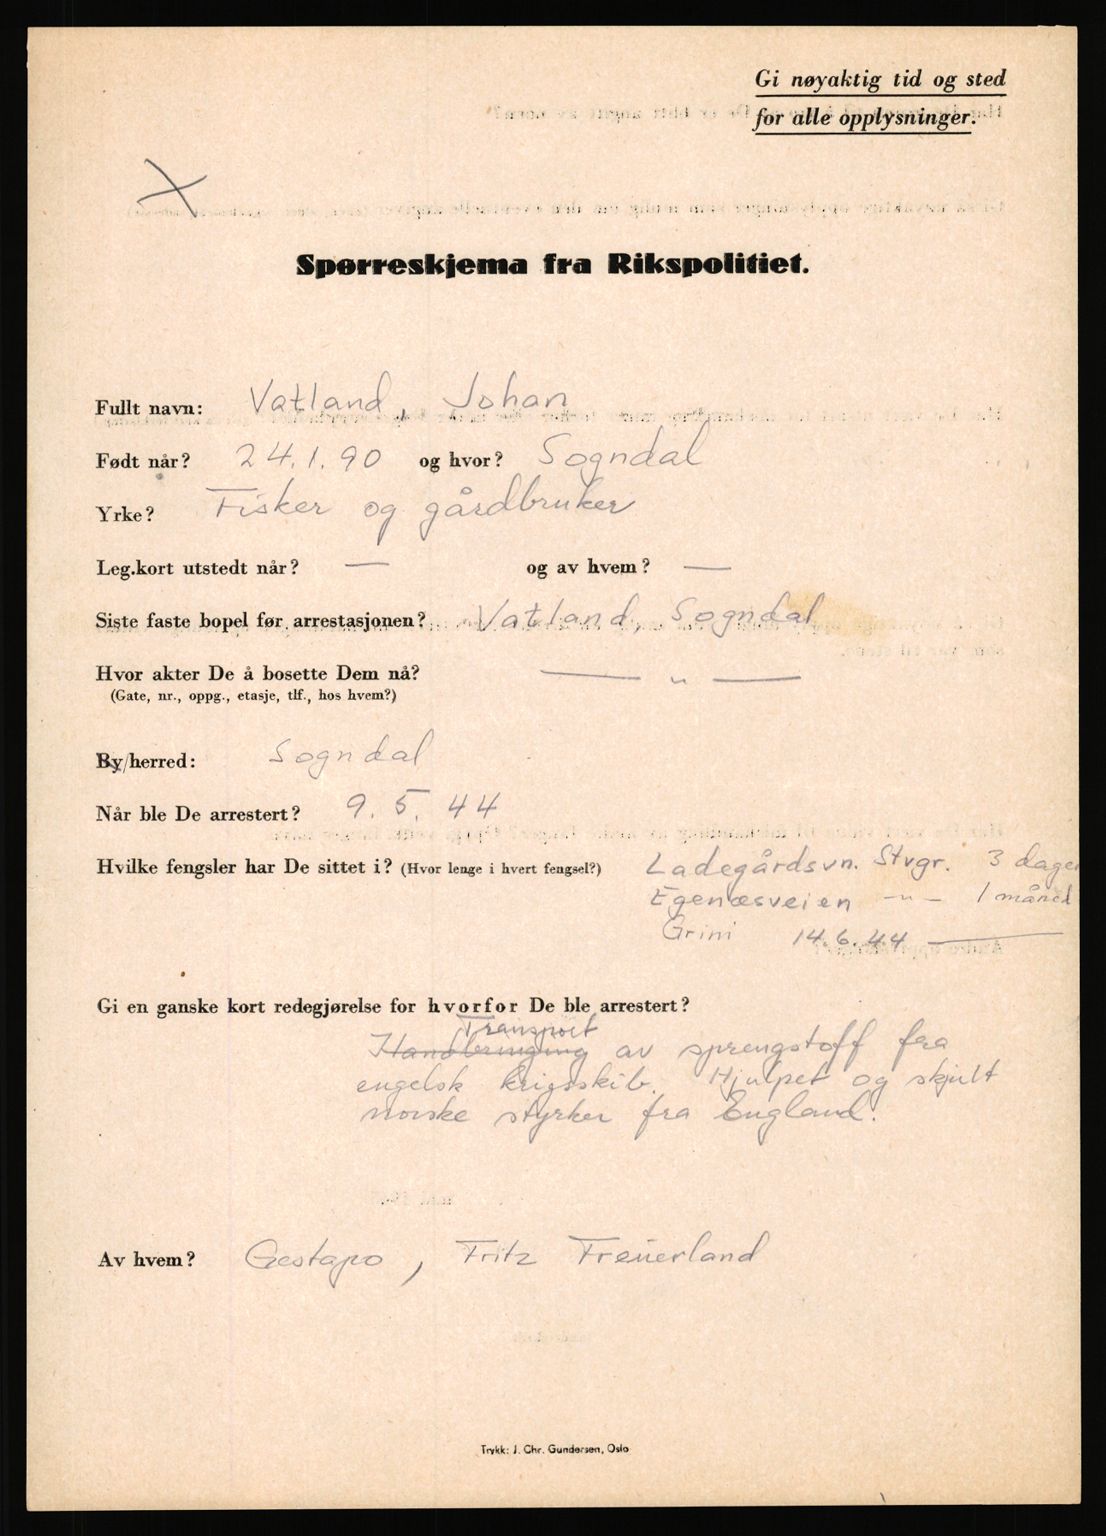 Gi nøyaktig tid og sted
for alle opplysninger.
Spørreskjema fra Rikspolitiet.
Fullt navn: Vatland, Johan
Født når? 24.1.90 og hvor? Sogndal
Yrke? Fisker og gårdbruker
Leg.kort utstedt når? — og av hvem? —
Siste faste bopel før arrestasjonen? Vatland, Sogndal
Hvor akter De å bosette Dem nå? — " —
(Gate, nr., oppg., etasje, tlf., hos hvem?)
By/herred: Sogndal
Når ble De arrestert? 9.5.44
Hvilke fengsler har De sittet i? (Hvor lenge i hvert fengsel?) Ladegårdsvn. Stvgr. 3 dager
Egenæsveien — " — 1 måned
Grini 14.6.44 —
Gi en ganske kort redegjørelse for hvorfor De ble arrestert?
Transport
Handbringing av sprengstoff fra
engelsk krigsskib. Hjulpet og skjult
norske styrker fra England.
Av hvem? Gestapo, Fritz Freuerland
Trykk: J. Chr. Gundersen, Oslo